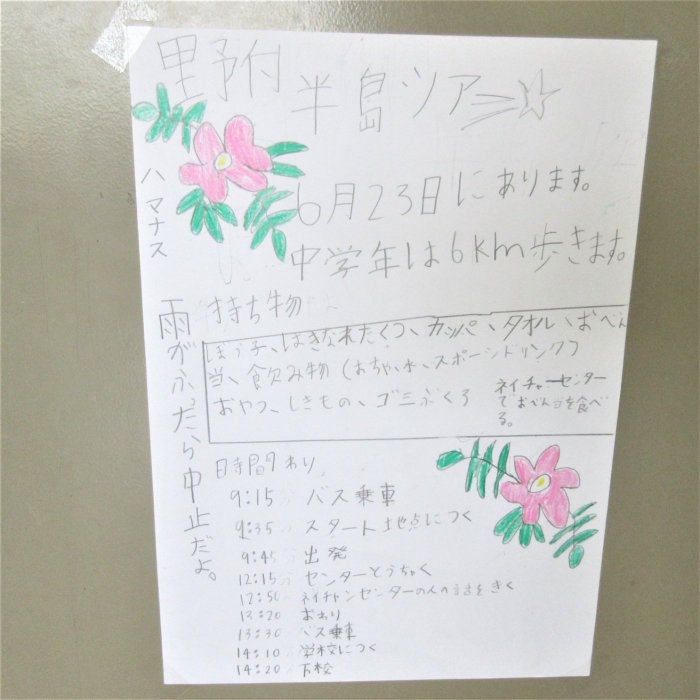 野付半島ツアー
ハマナス
6月23日にあります。
中学年は6km歩きます。
雨がふったら中止だよ。
持ち物
ぼう子、はきなれたくつ、カッパ、タオル、おべん
当、飲み物(おちゃ、水、スポーツドリンク)
おやつ、しきもの、ゴミぶくろ
ネイチャーセンター
でおべんヨを食べ
る。
時間わり
9:15 バス乗車
9:35 スタート地点につく
9:45 出発
12:15 センターとうちゃく
12:50 ネイチャンセンターの人の話をきく
13:20 おわり
13:30 バス乗車
14:10 学校につく
14:20 下校